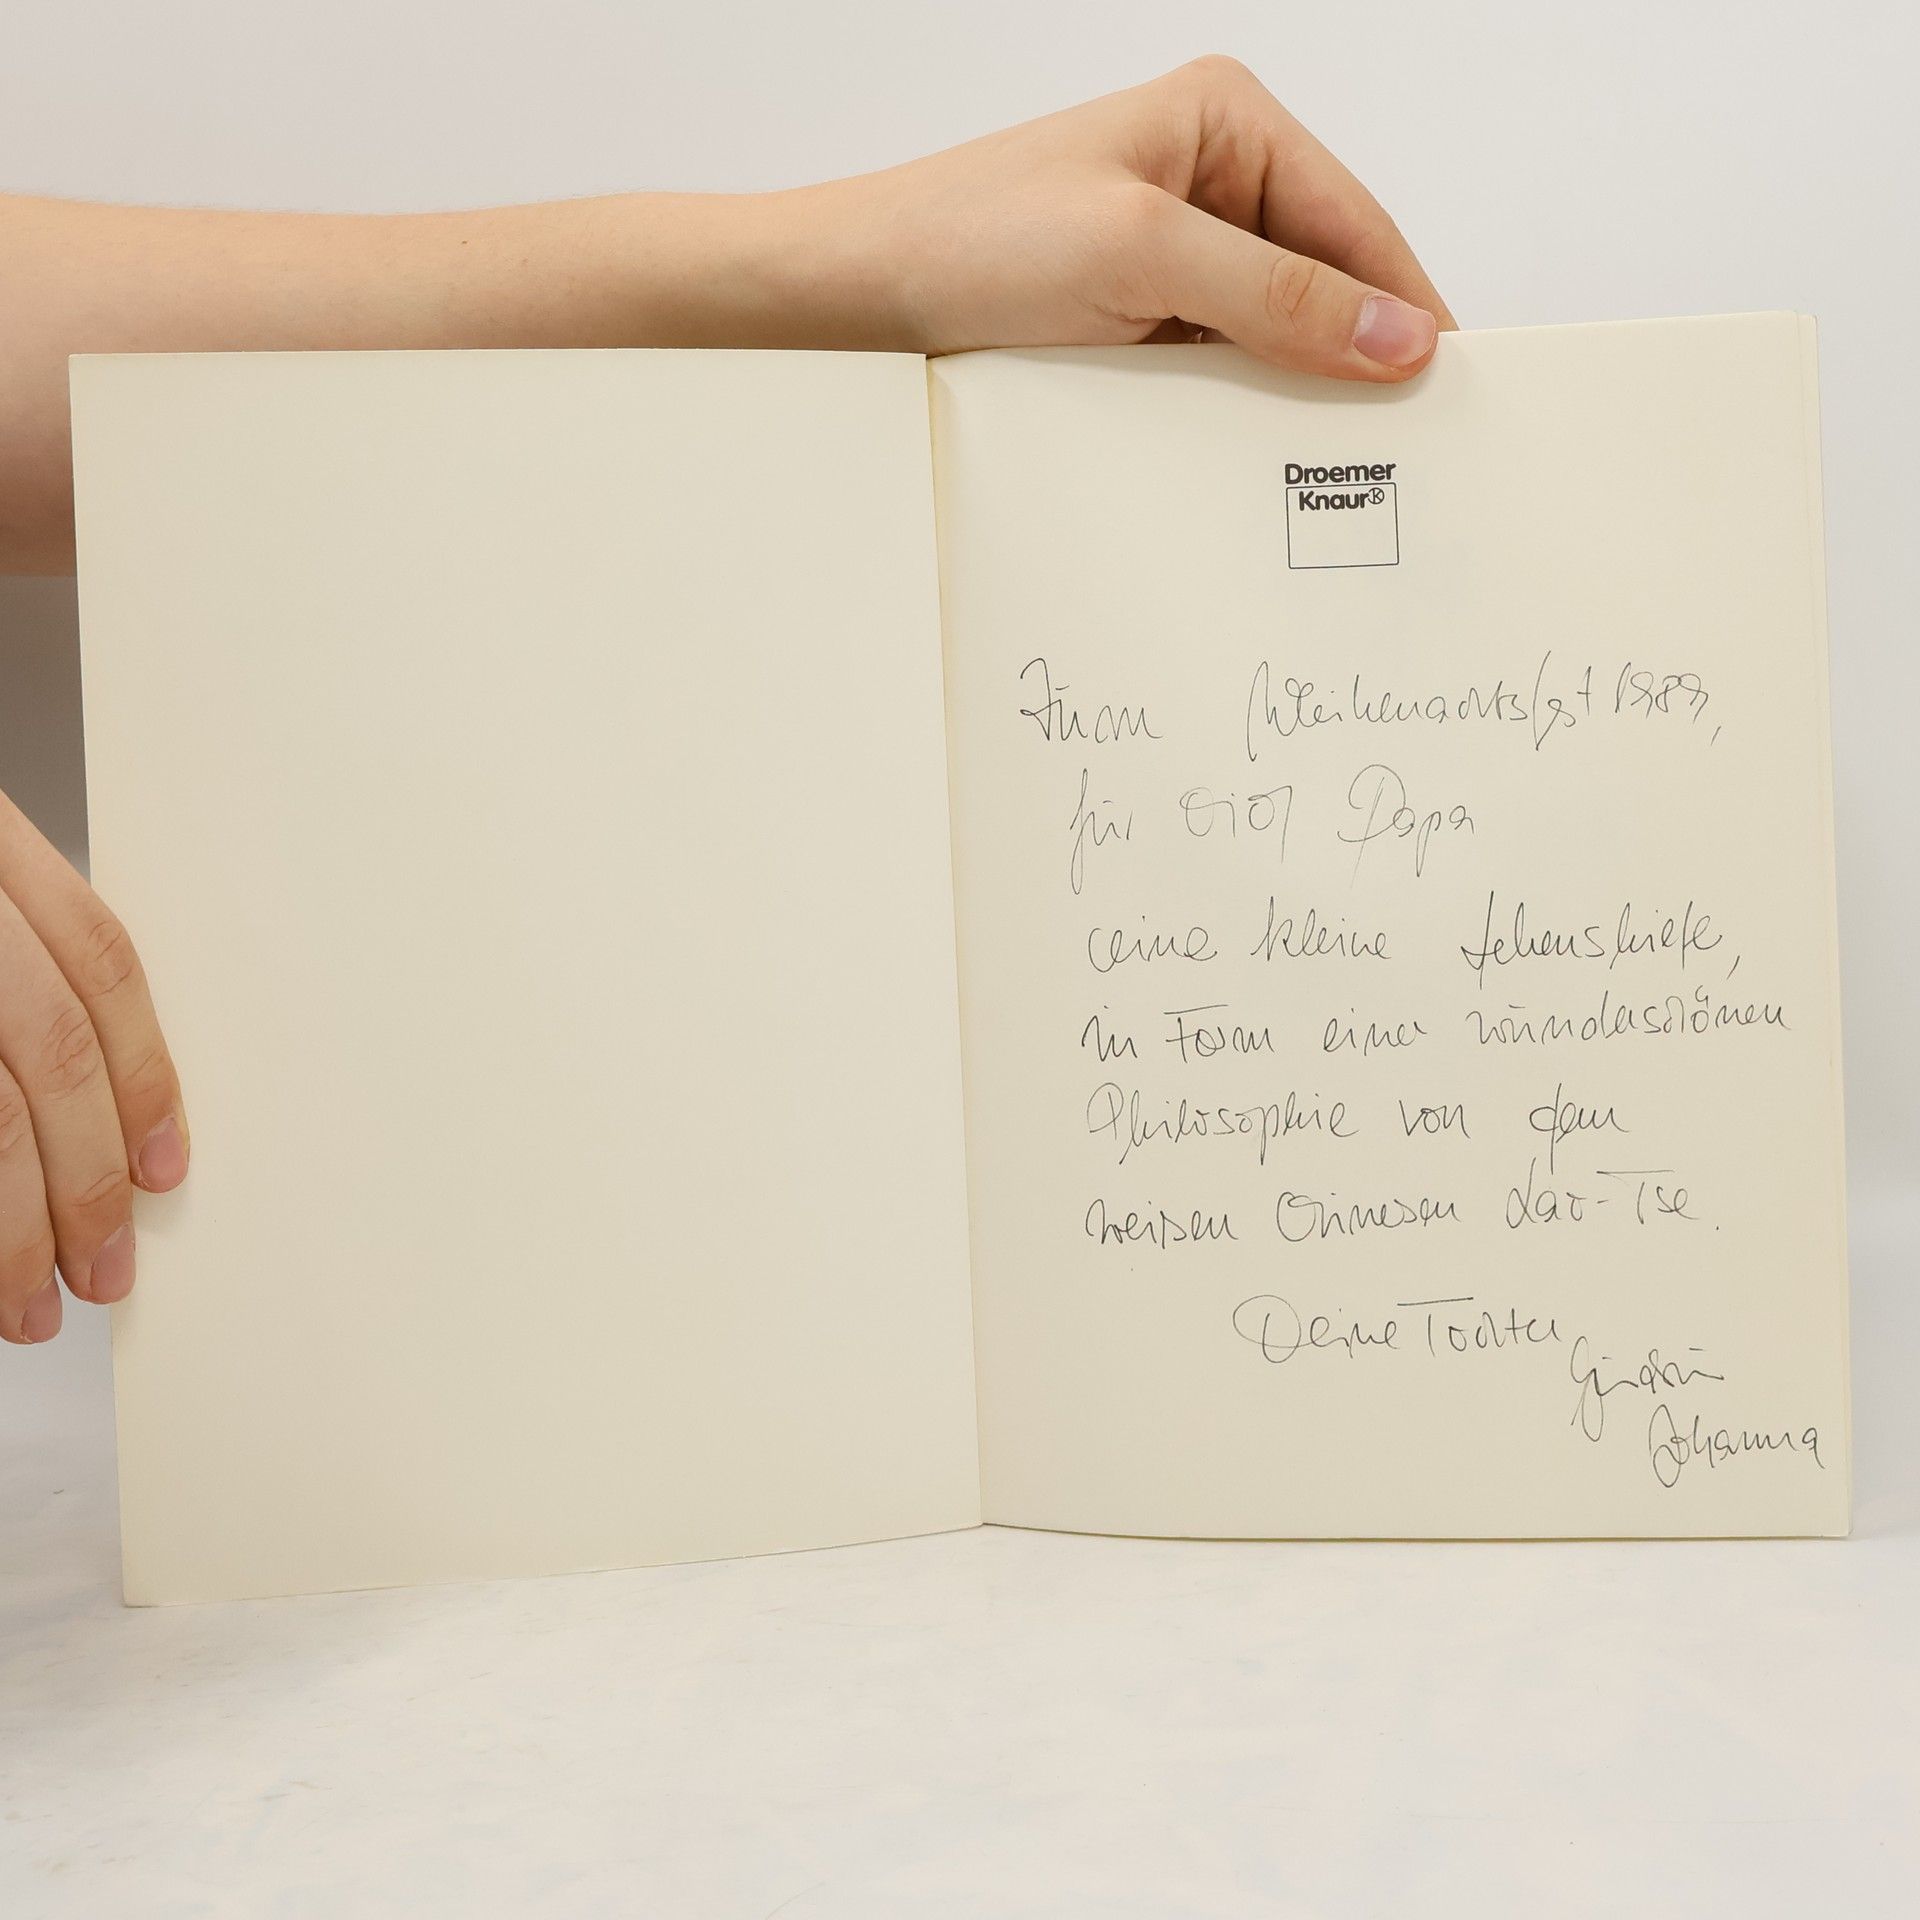 Droemer
Knaur®
Zum Weihenachtsfest 1989,
für Dich Papa
eine kleine Lebenshilfe,
in Form einer wunderschönen
Philosophie von dem
weisen Chinesen Lao-Tse.
Deine Tochter
Johanna